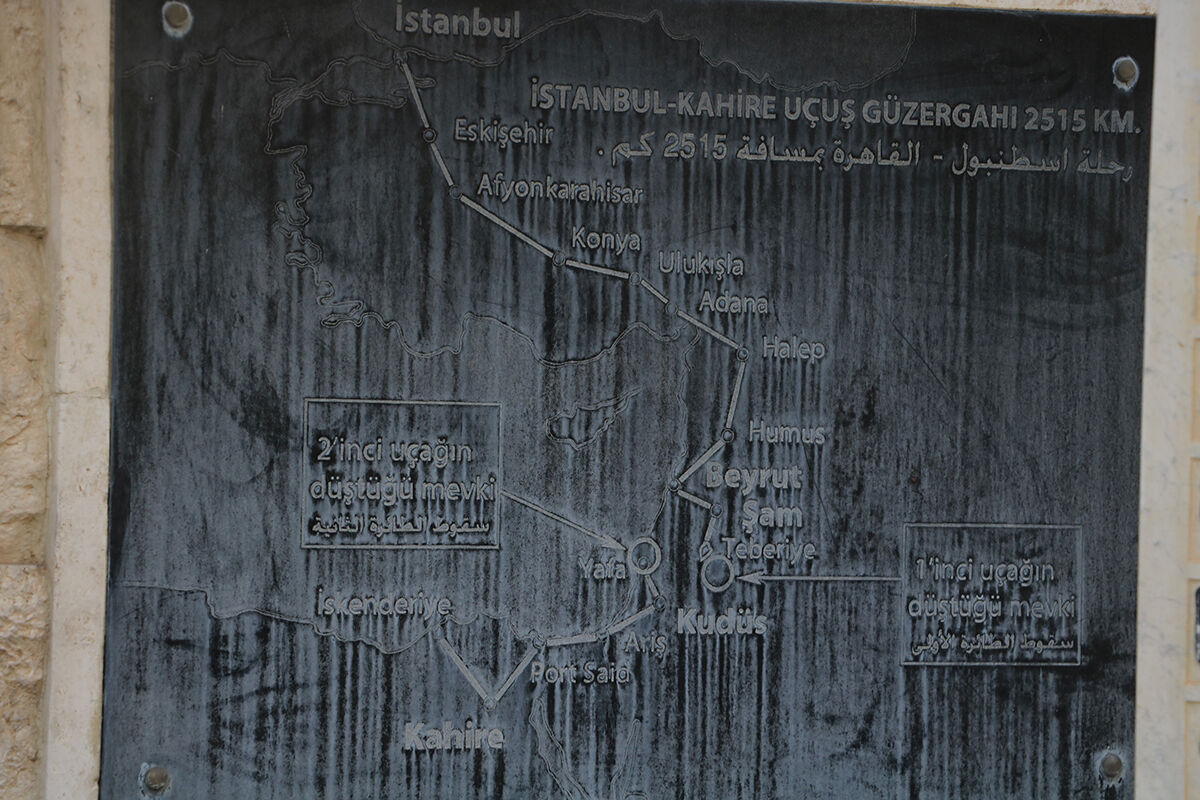 İstanbul
İSTANBUL-KAHİRE UÇUŞ GÜZERGAHI 2515 KM.
رحلة اسطنبول - القاهرة بمسافة 2515 كم .
Eskişehir
Afyonkarahisar
Konya
Ulukışla
Adana
Halep
Humus
Beyrut
Şam
Teberiye
2'inci uçağın
düştüğü mevki
سقوط الطائرة الثانية
Yafa
1'inci uçağın
düştüğü mevki
سقوط الطائرة الأولى
İskenderiye
Kudüs
Ariş
Port Said
Kahire